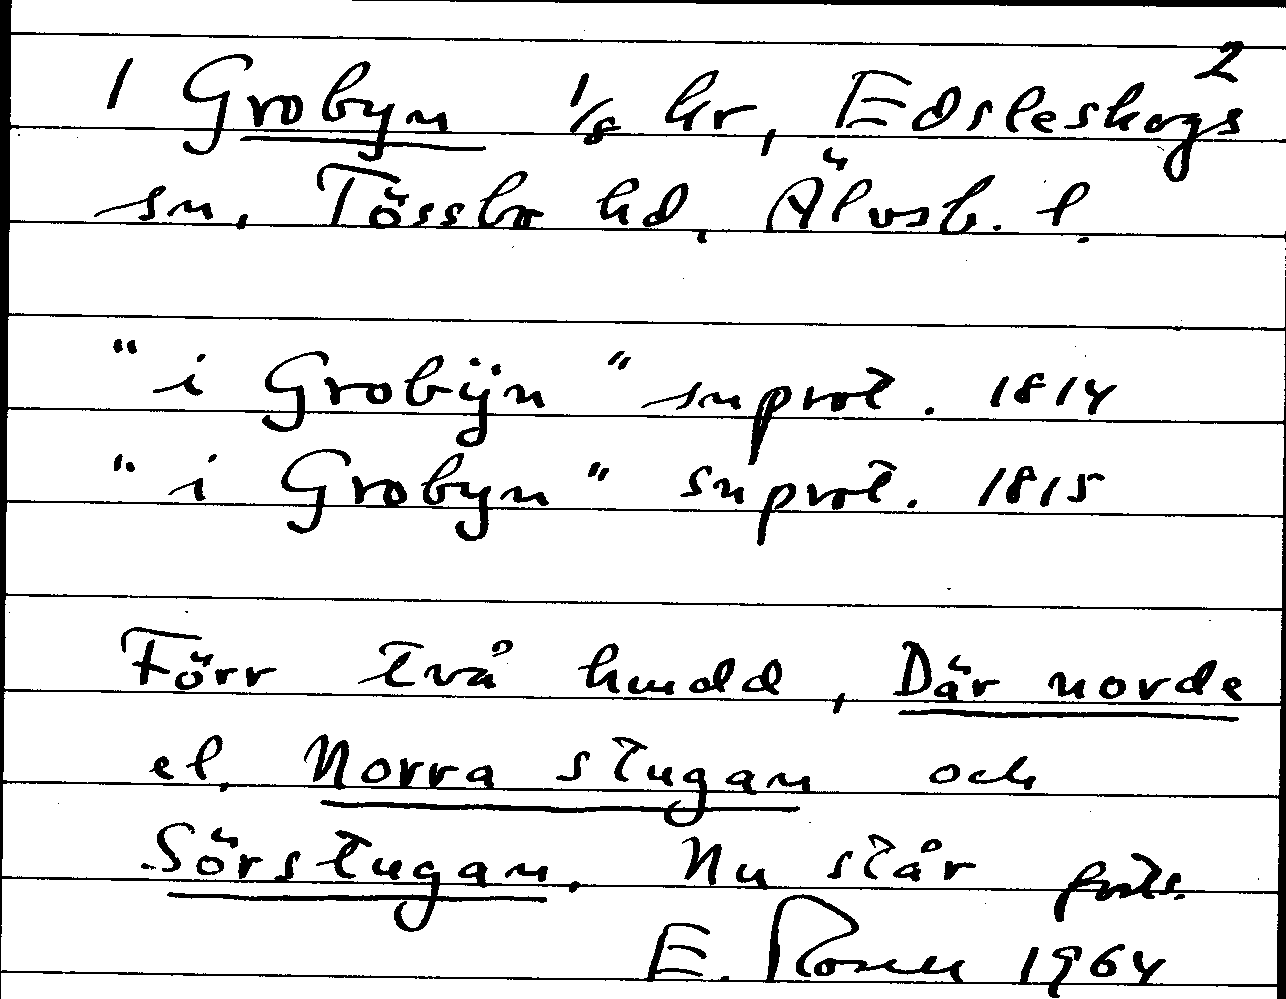 2
1 Grobyn 1/8 hr, Edsleskogs
sn, Tössbo hd, Älvsb. l.
"i Grobÿn" snprot. 1814
"i Grobyn" snprot. 1815
Förr två hmdd, Där norde
el. Norra stugan och
Sörstugan. Nu står forts.
E. Rosell 1964